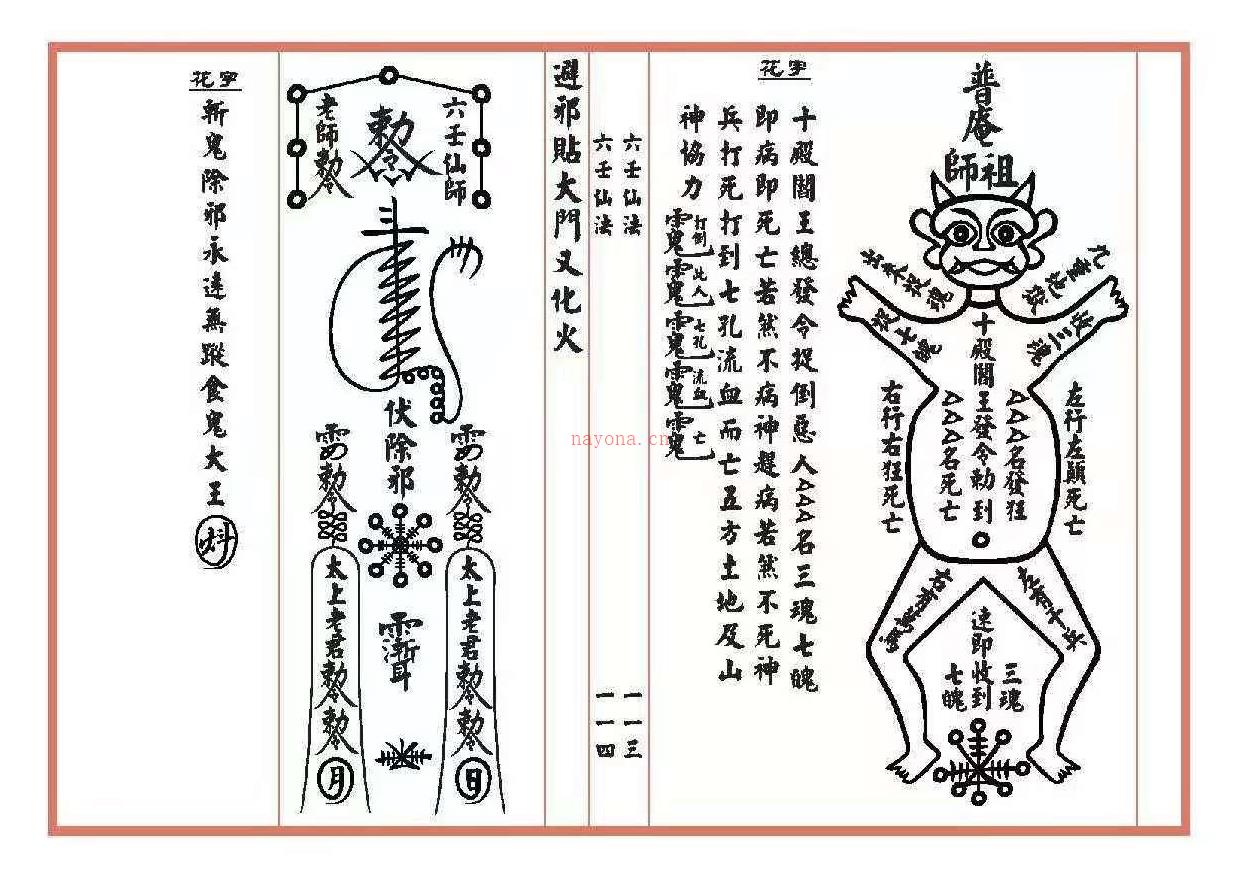 普庵祖師
出來捉魂
捉七魄
收三魂
十殿閻王發令勅到
△△△名發狂
△△△名死亡
左行左顛死亡
右行右狂死亡
速即收到
三魂
七魄
花字
十殿閻王總發令捉倒惡人△△△名三魂七魄
即病即死亡若然不病神趕病若然不死神
兵打死打到七孔流血而亡五方土地及山
神協力
打倒
此人
七孔
流血
亡
六壬仙法
一一三
六壬仙法
一一四
避邪貼大門又化火
六壬仙師
勅令
老師勅令
伏除邪
勅令
太上老君勅令勅令
日
勅令
太上老君勅令勅令
月
花字
斬鬼除邪永遠無蹤食鬼大王
nayona.cn